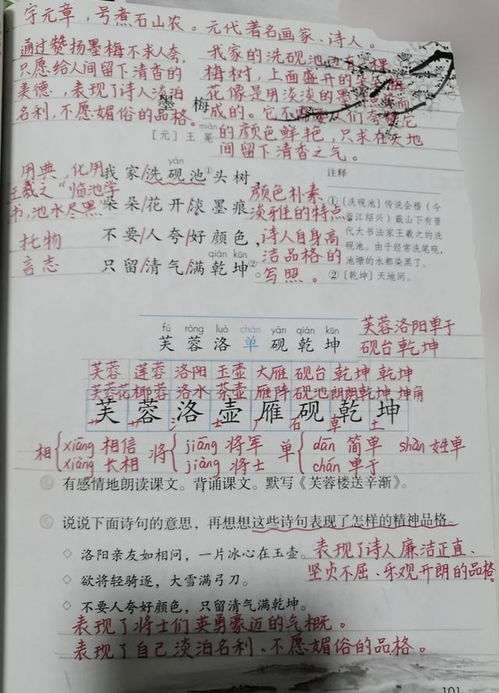 字元章，号煮石山农。元代著名画家、诗人。
通过赞扬墨梅不求人夸，
只愿给人间留下清香的
美德，表现了诗人淡泊
名利，不愿媚俗的品格。
我家的洗砚池
梅树，上面盛开的
花像是用淡淡的墨
成的。它
的颜色鲜艳，只求在天地
间留下清香之气。
墨梅
mián
[元]王冕
用典，化用
王羲之“临池学
书，池水尽黑”
托物
言志
yàn
我家/洗砚池①头树，
朵朵/花开/淡墨痕。
不要/人夸/好颜色，
只留/清气/满乾坤②。
颜色朴素、
淡雅的特点
诗人自身高
洁品格的
写照。
注释
①〔洗砚池〕传说会稽（今
浙江绍兴）蕺山下有晋
代大书法家王羲之的洗
砚池。由于经常洗笔砚，
池塘的水都染黑了。
②〔乾坤〕天地间。
fú róng luò chán yàn qián kūn
芙蓉洛单砚乾坤
芙蓉洛阳单于
砚台乾坤
芙蓉 莲蓉 洛阳 玉壶 大雁 砚台 乾坤 乾坤
芙蓉花 椰蓉 洛水 茶壶 雁阵 砚池 朗朗乾坤 坤角
芙蓉洛壶雁砚乾坤
相 xiāng 相信 将 jiāng 将军 单 dān 简单 shàn 姓单
xiàng 长相 jiàng 将士 chán 单于
有感情地朗读课文。背诵课文。默写《芙蓉楼送辛渐》。
说说下面诗句的意思，再想想这些诗句表现了怎样的精神品格。
◇ 洛阳亲友如相问，一片冰心在玉壶。表现了诗人廉洁正直、
坚贞不屈、乐观开朗的品格
◇ 欲将轻骑逐，大雪满弓刀。
◇ 不要人夸好颜色，只留清气满乾坤。
表现了将士们英勇豪迈的气概。
表现了自己淡泊名利、不愿媚俗的品格。
101